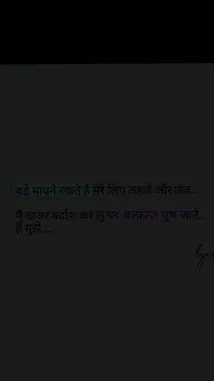 बड़े मायने रखते है मेरे लिए लहजे और लफ्ज़...
मैं खंजर बर्दाश कर लू पर अल्फाज़ चुभ जाते
है मुझे...